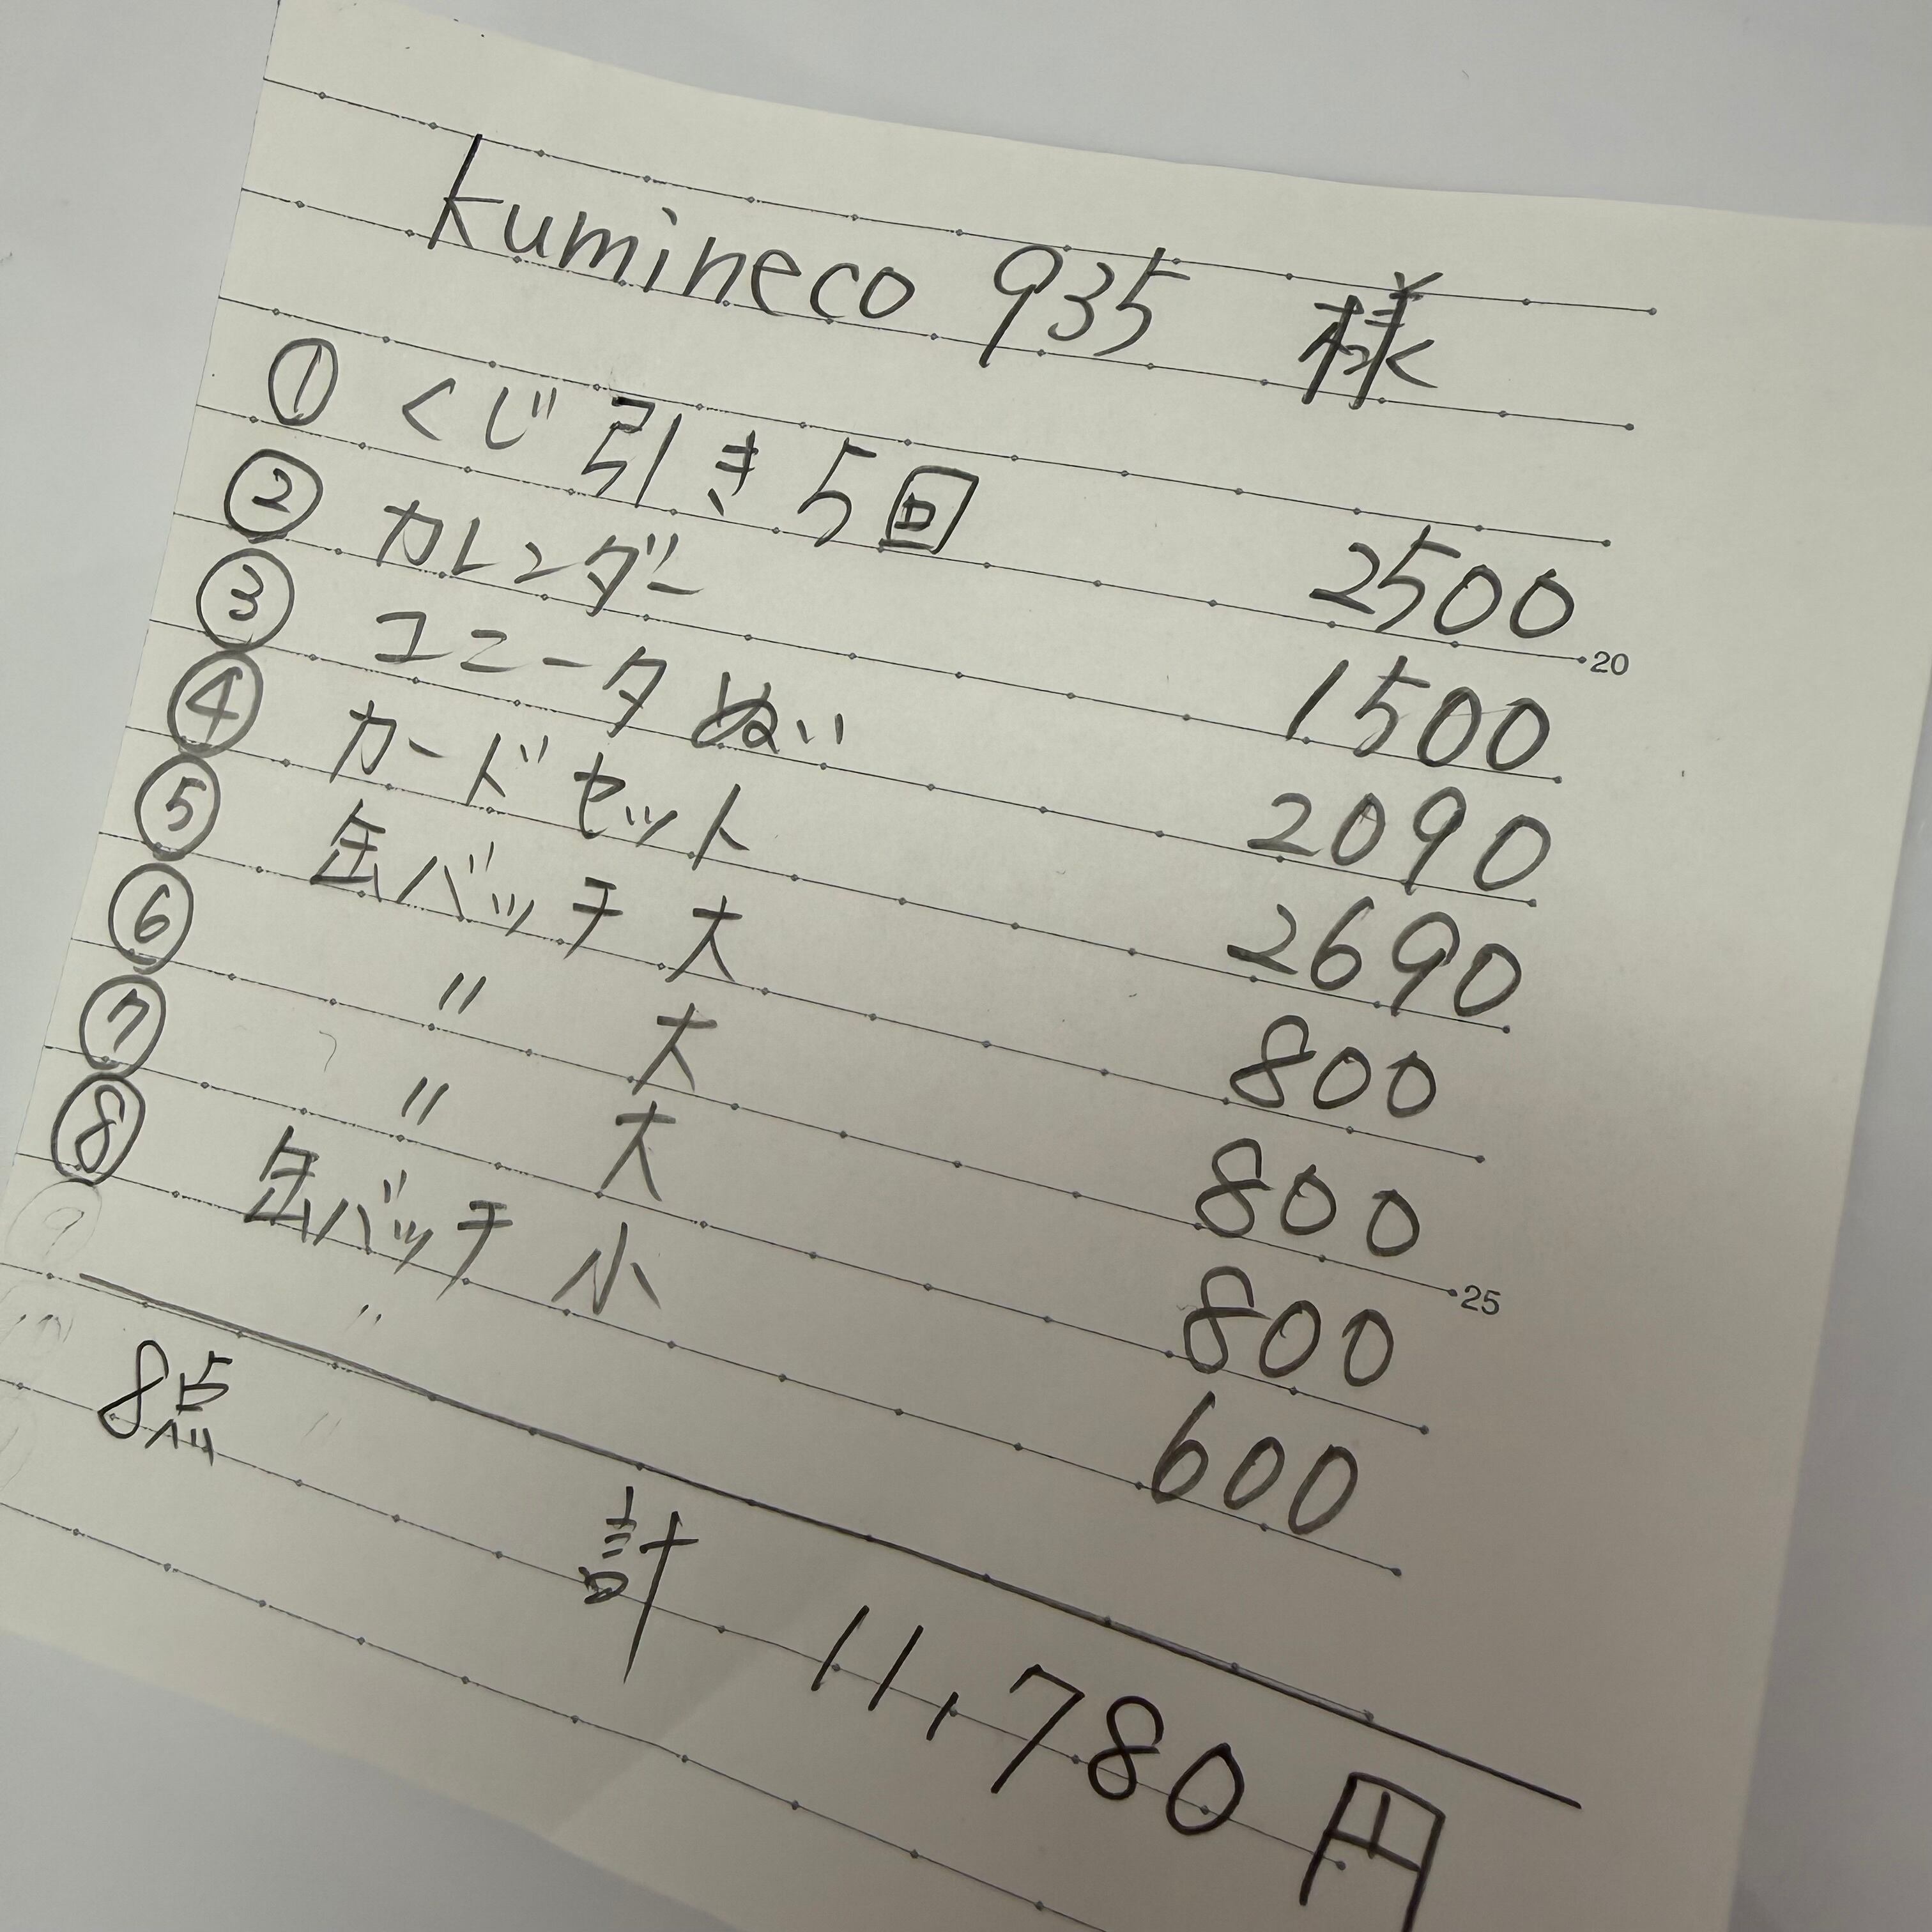 kumineco 935 様
① くじ引き 5回 2500
② カレンダー 1500
③ ユニータ ぬい 2090
④ カードセット 2690
⑤ 缶バッチ 大 800
⑥ 〃 大 800
⑦ 〃 大 800
⑧ 缶バッチ 小 600
8点
計 11,780円
20
25